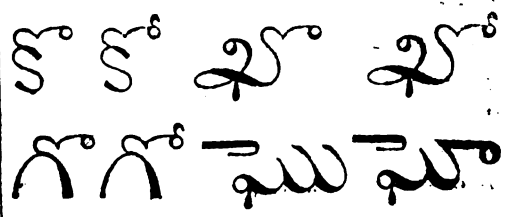 కొ కో ఖొ ఖో
గొ గో ఘొ ఘో